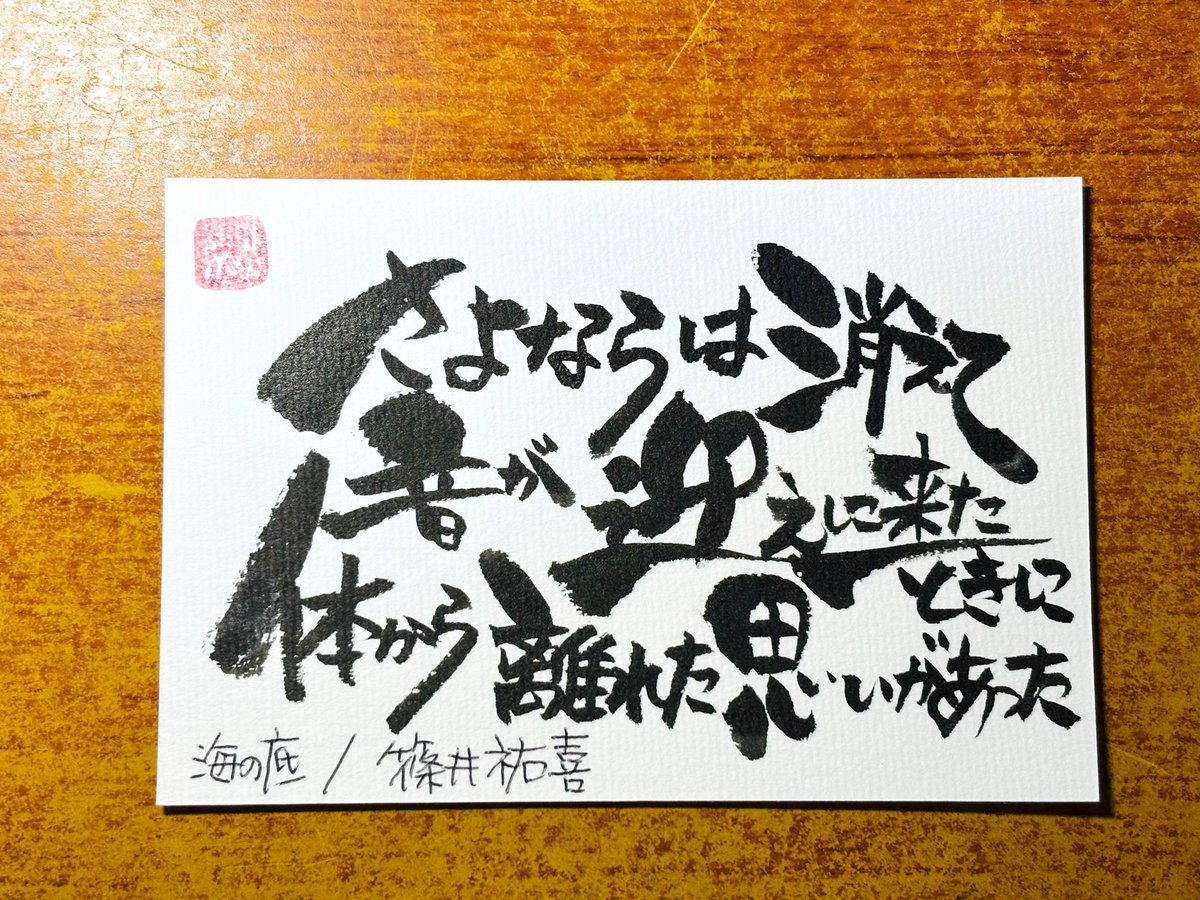 さよならは消えて
音が迎えに来た
ときに
体から離れた思いがあった
海の底 / 篠井祐喜